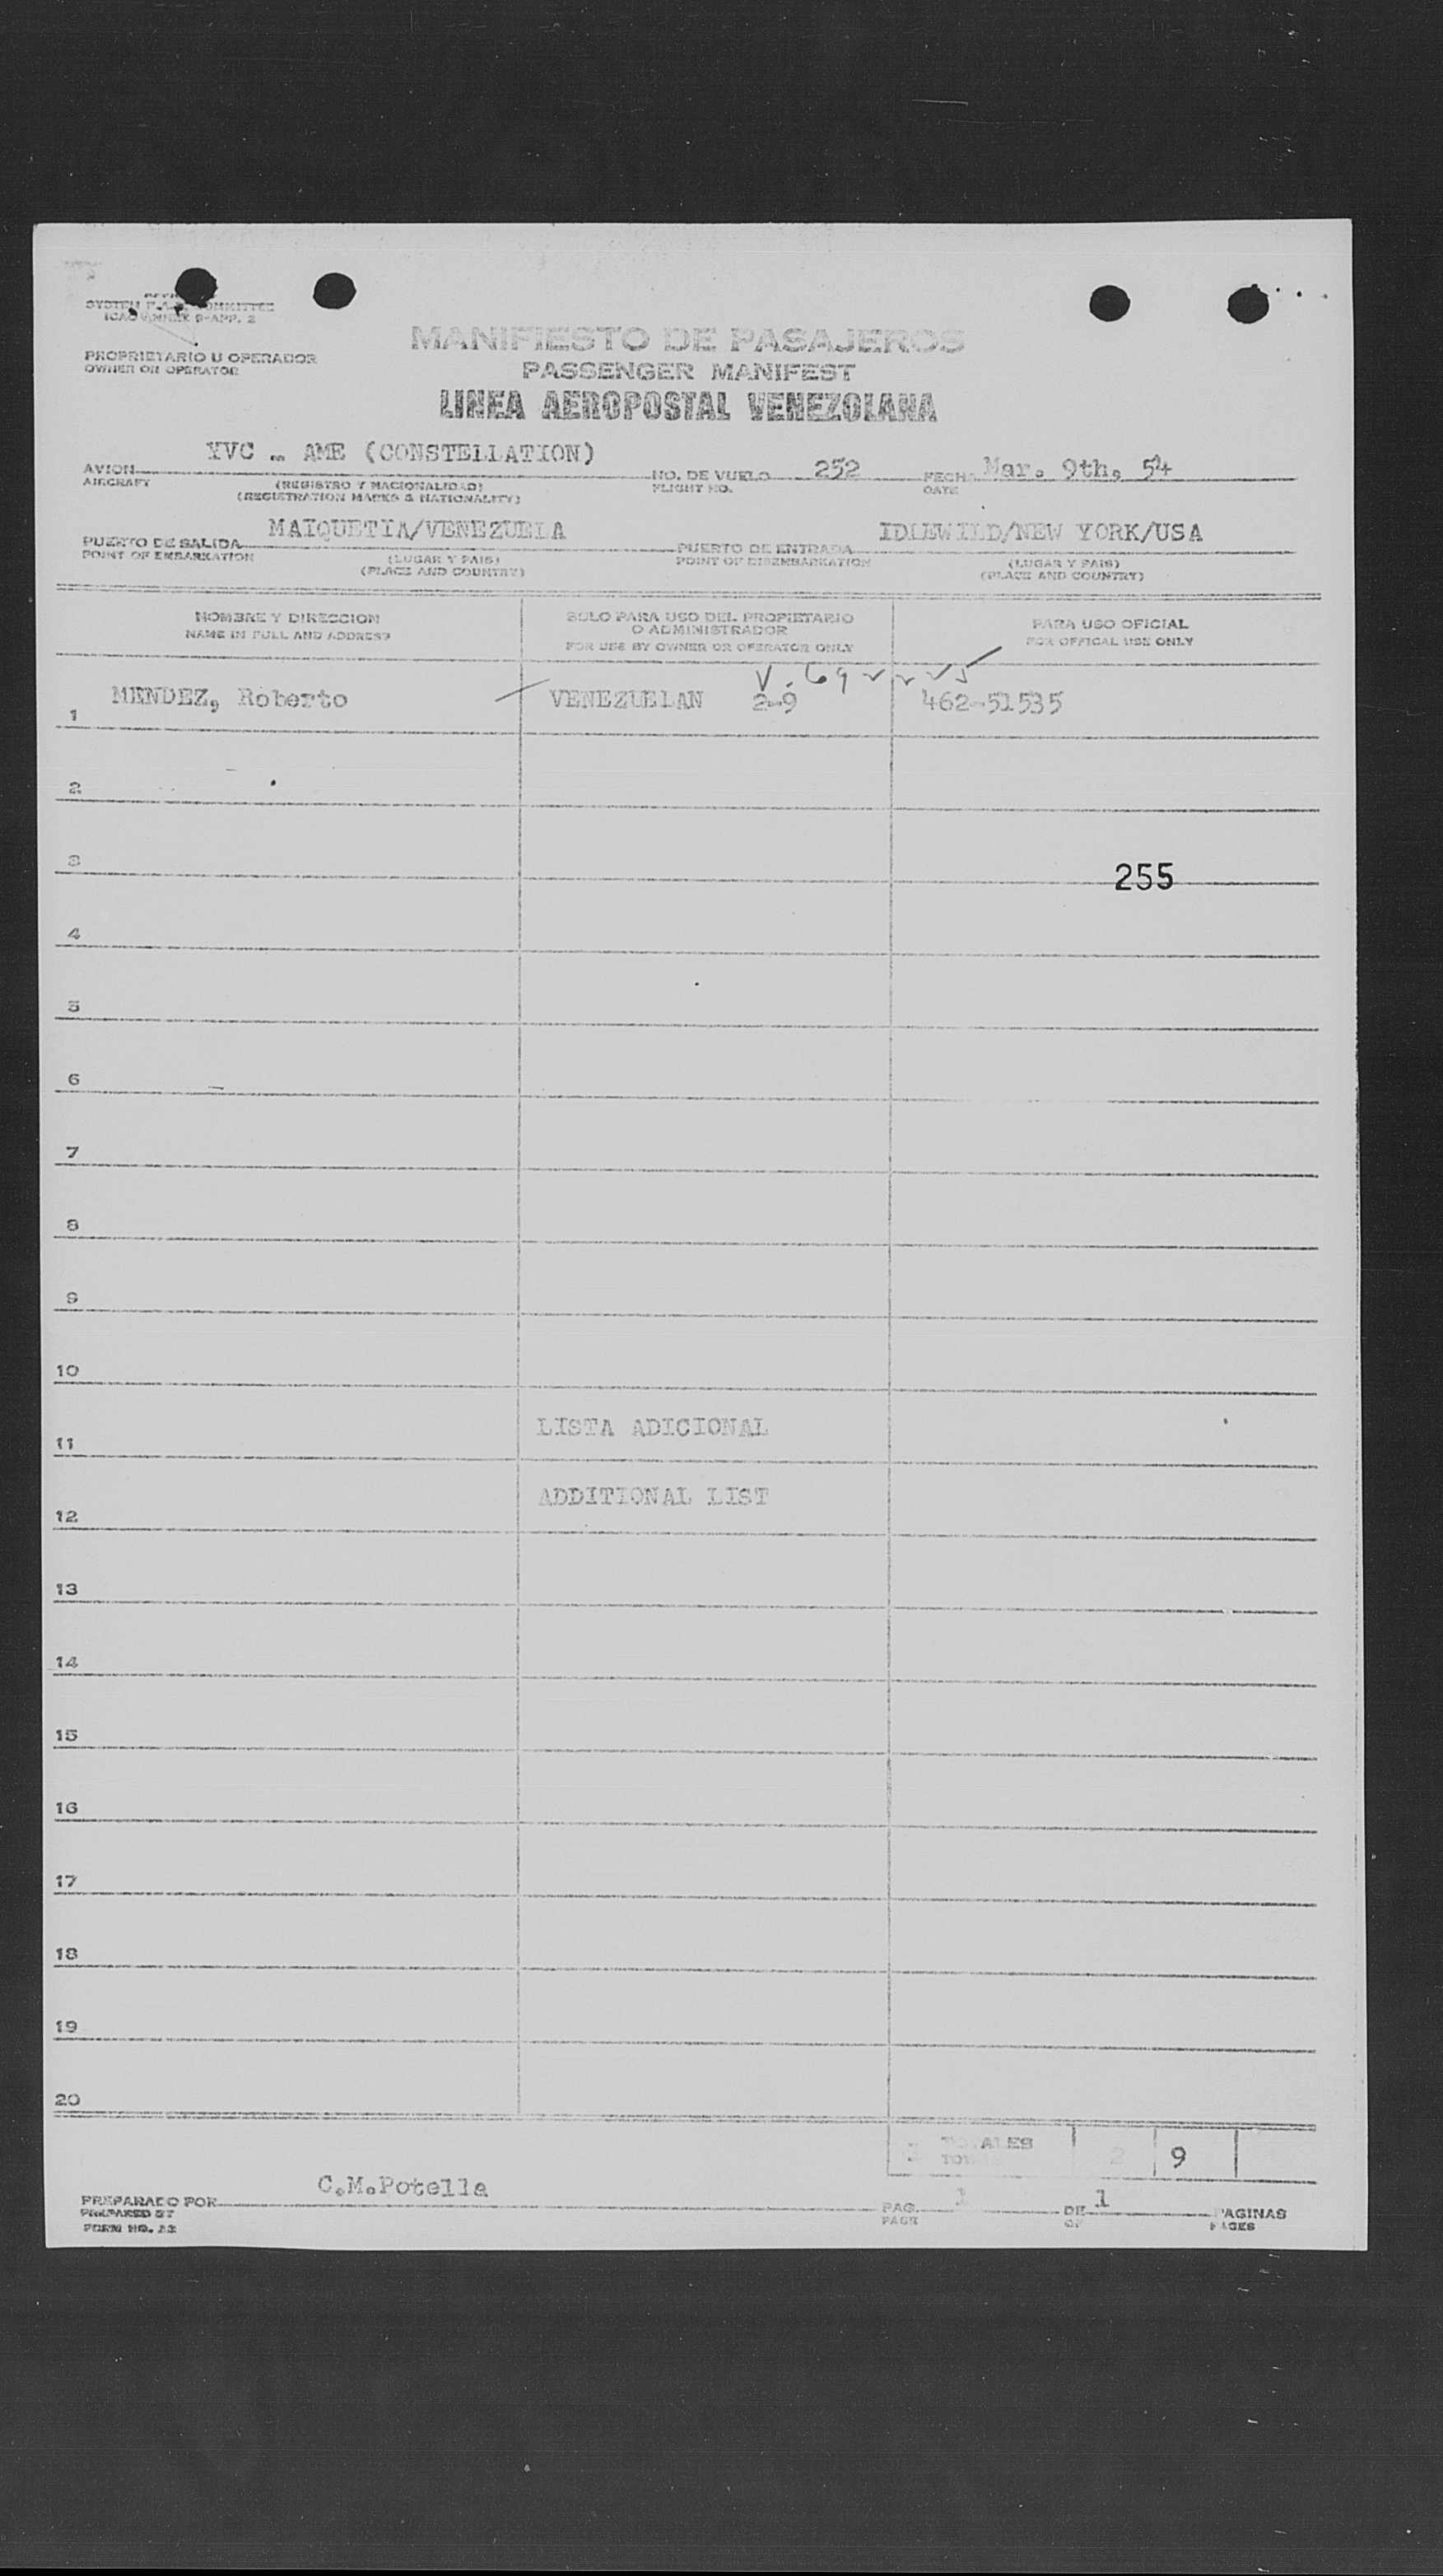 SYSTEM F.A.L. COMMITTEE
ICAO ANNEX 9-APP. 2
MANIFIESTO DE PASAJEROS
PROPRIETARIO U OPERADOR
OWNER OR OPERATOR
PASSENGER MANIFEST
LINEA AEROPOSTAL VENEZOLANA
YVC - AME (CONSTELLATION)
AVION NO. DE VUELO 252 FECHA Mar. 9th, 54
AIRCRAFT (REGISTRO Y NACIONALIDAD) FLIGHT NO. DATE
(REGISTRATION MARKS & NATIONALITY)
MAIQUETIA/VENEZUELA IDLEWILD/NEW YORK/USA
PUERTO DE SALIDA PUERTO DE ENTRADA
POINT OF EMBARKATION (LUGAR Y PAIS) POINT OF DISEMBARKATION (LUGAR Y PAIS)
(PLACE AND COUNTRY) (PLACE AND COUNTRY)
NOMBRE Y DIRECCION SOLO PARA USO DEL PROPIETARIO PARA USO OFICIAL
NAME IN FULL AND ADDRESS O ADMINISTRADOR FOR OFFICAL USE ONLY
FOR USE BY OWNER OR OPERATOR ONLY
1 MENDEZ, Roberto VENEZUELAN 2-9 462-51535
2
3 255
4
5
6
7
8
9
10
11 LISTA ADICIONAL
12 ADDITIONAL LIST
13
14
15
16
17
18
19
20
TOTALES 2 9
C.M.Potella
PREPARADO POR PAG. 1 DE 1 PAGINAS
PREPARED BY PAGE OF PAGES
FORM NO. 13